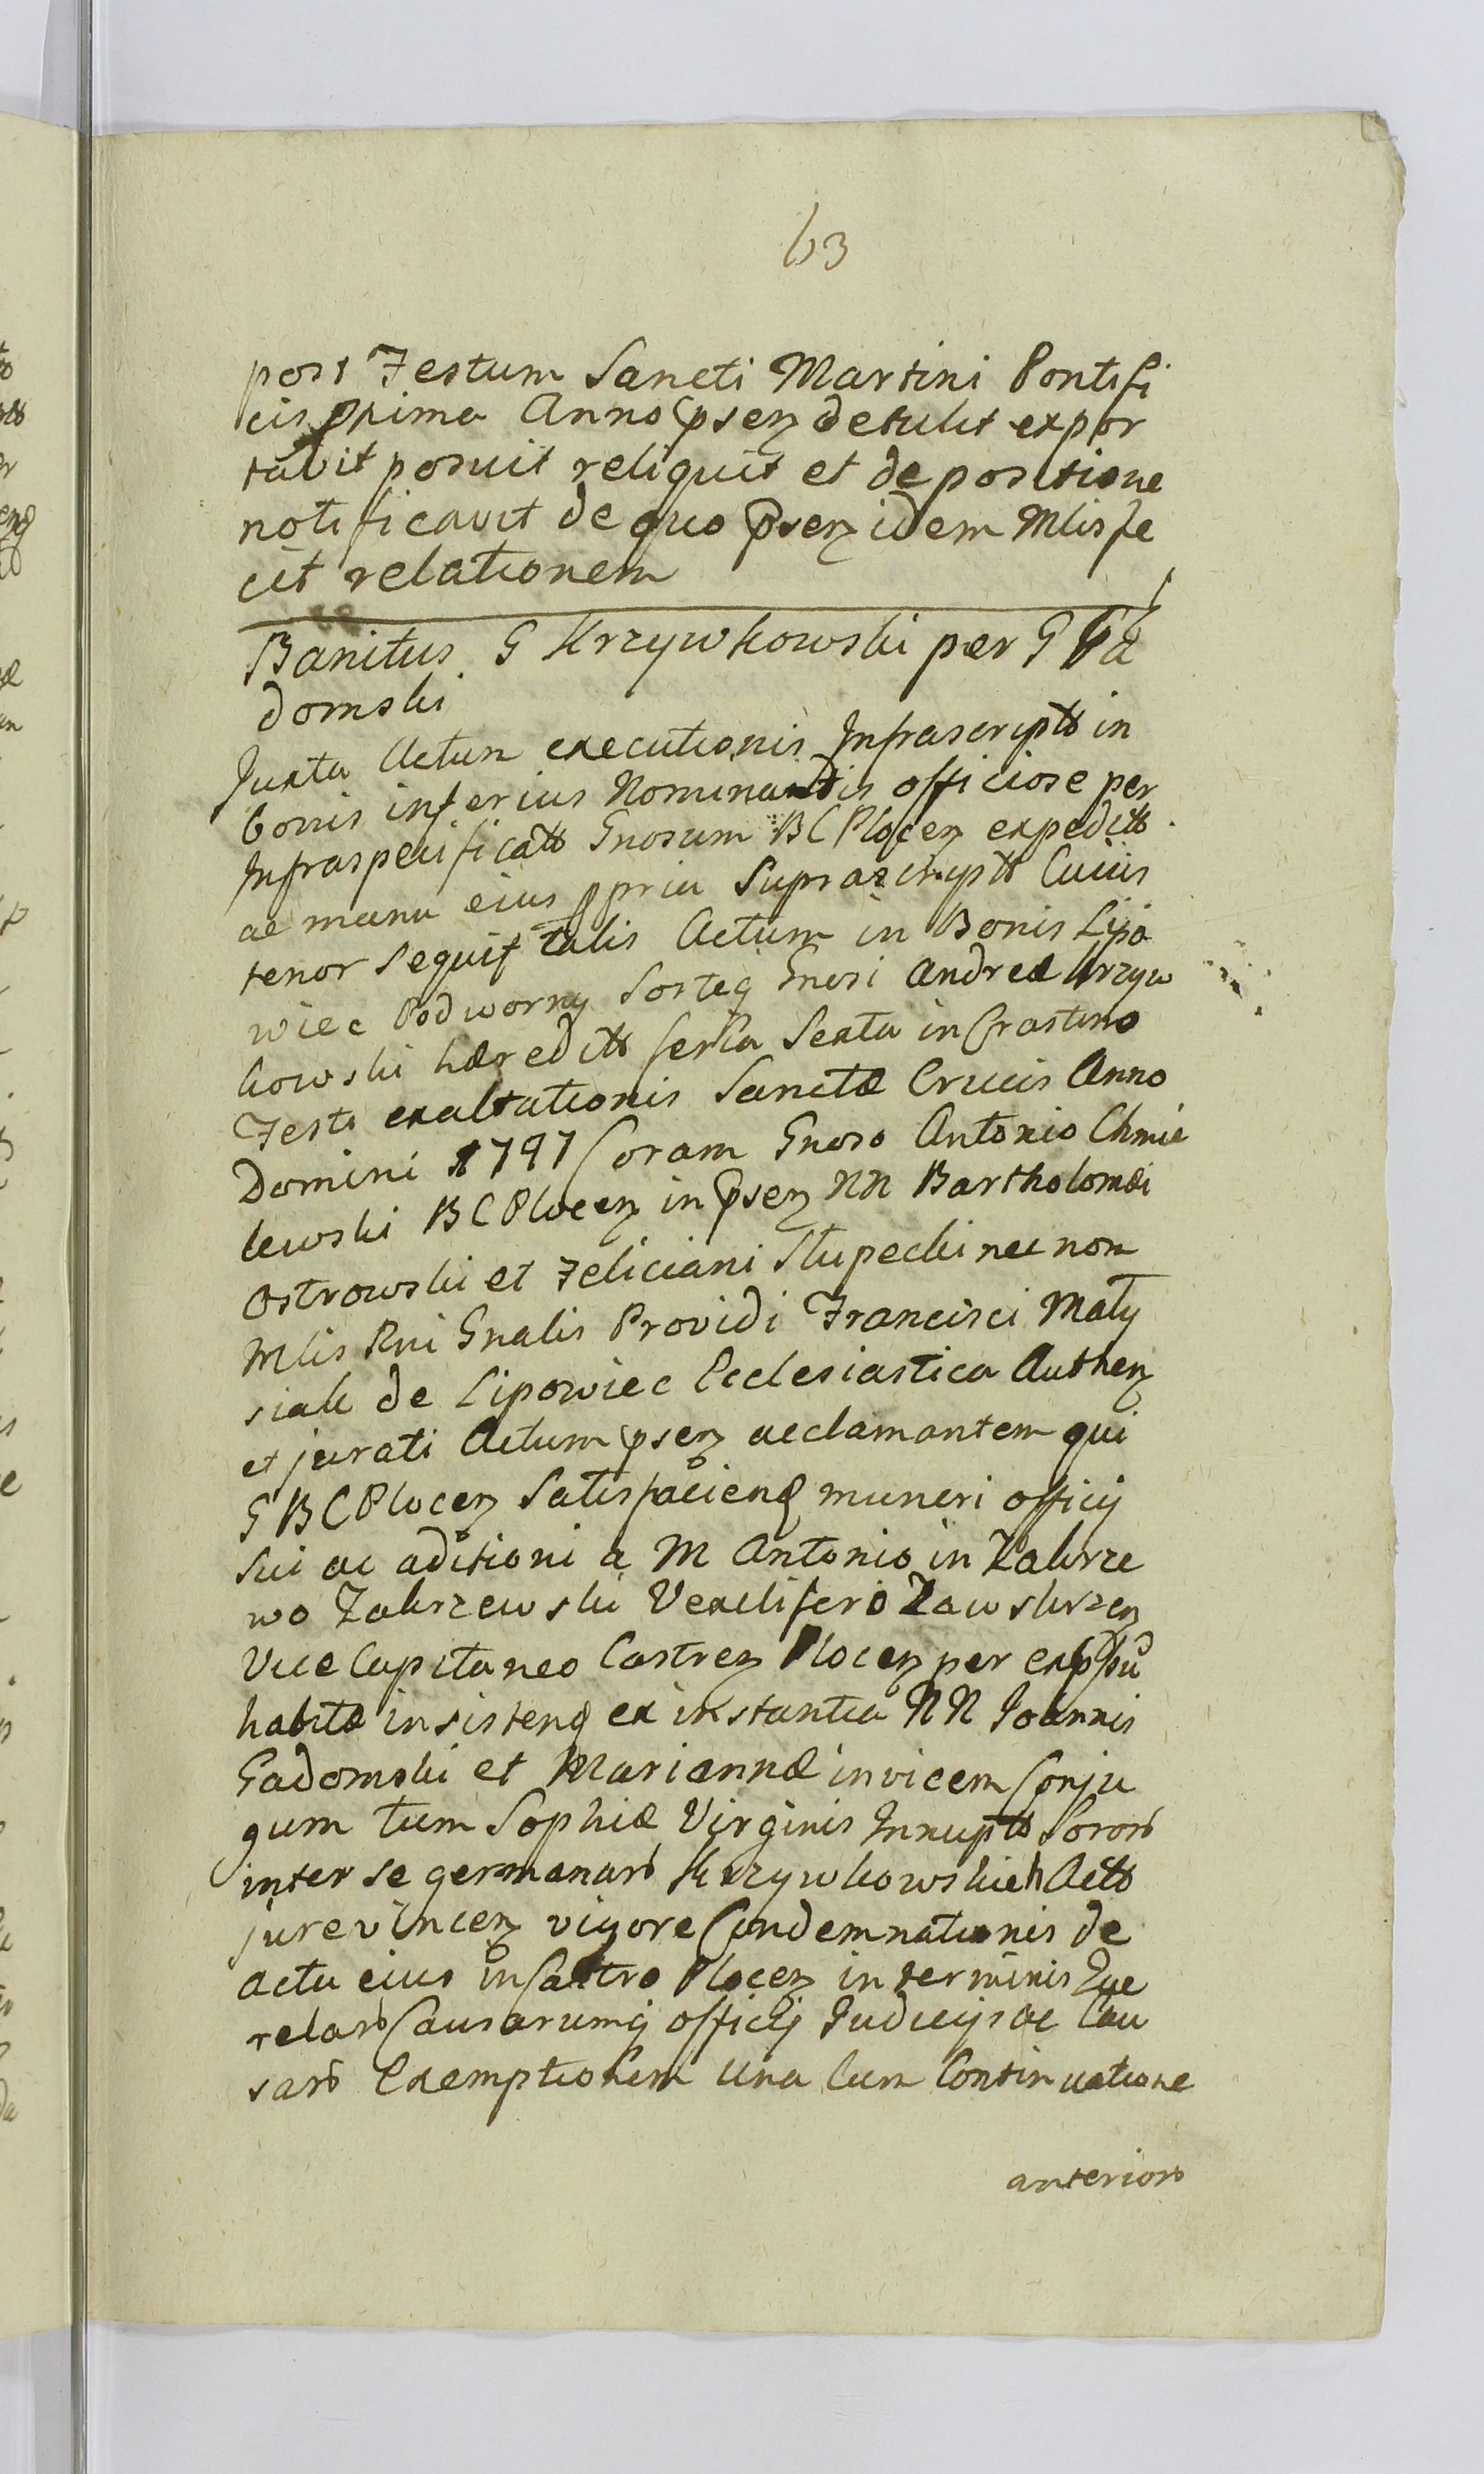 63
post Festum Sancti Martini Pontifi
cis prima Anno psen detulit expor
tavit posuit reliquit et de positione
notificavit de quo psen idem Mlis fe
cit relationem
Banitus G Krzywkowski per G Ga
domski
Juxta Actum executionis Infrascriptt in
bonis inferius Nominandis officiose per
Infraspecificatt Gnosum BC Plocen expeditt
ac manu eius ppria Suprascriptt Cuius
tenor sequit talis Actum in Bonis Lipo
wiec Podworny Sorteq Gnosi Andreæ Krzyw
kowski hæreditt feria Sexta in Crastino
Festi exaltationis Sanctæ Crucis Anno
Domini 1797 Coram Gnoso Antonio Chmie
lewski BC Plocen in psen NN Bartholomæi
Ostrowski et Feliciani Slupecki nec non
Mlis Rni Gnalis Providi Francisci Maty
siak de Lipowiec Ecclesiastica Authen
et jurati Actum psen acclamantem qui
G BC Plocen Satisfaciend muneri officij
Sui ac aditioni a M Antonio in Zakrze
wo Zakrzewski Vexilifero Zawskrzen
Vice Capitaneo Castren Plocen per
habitæ insistend ex instantia NN Joannis
Gadomski et Mariannæ invicem Conju
gum tum Sophiæ Virginis Innuptt Soror
inter se germanar Krzywkowskich Actt
jurevincen vigore Condemnationis de
actu eius in Castro Plocen in terminis Que
relar Causarumq officij Judicijs ac Cau
sar Exemptionem una cum Continuatione
anterior